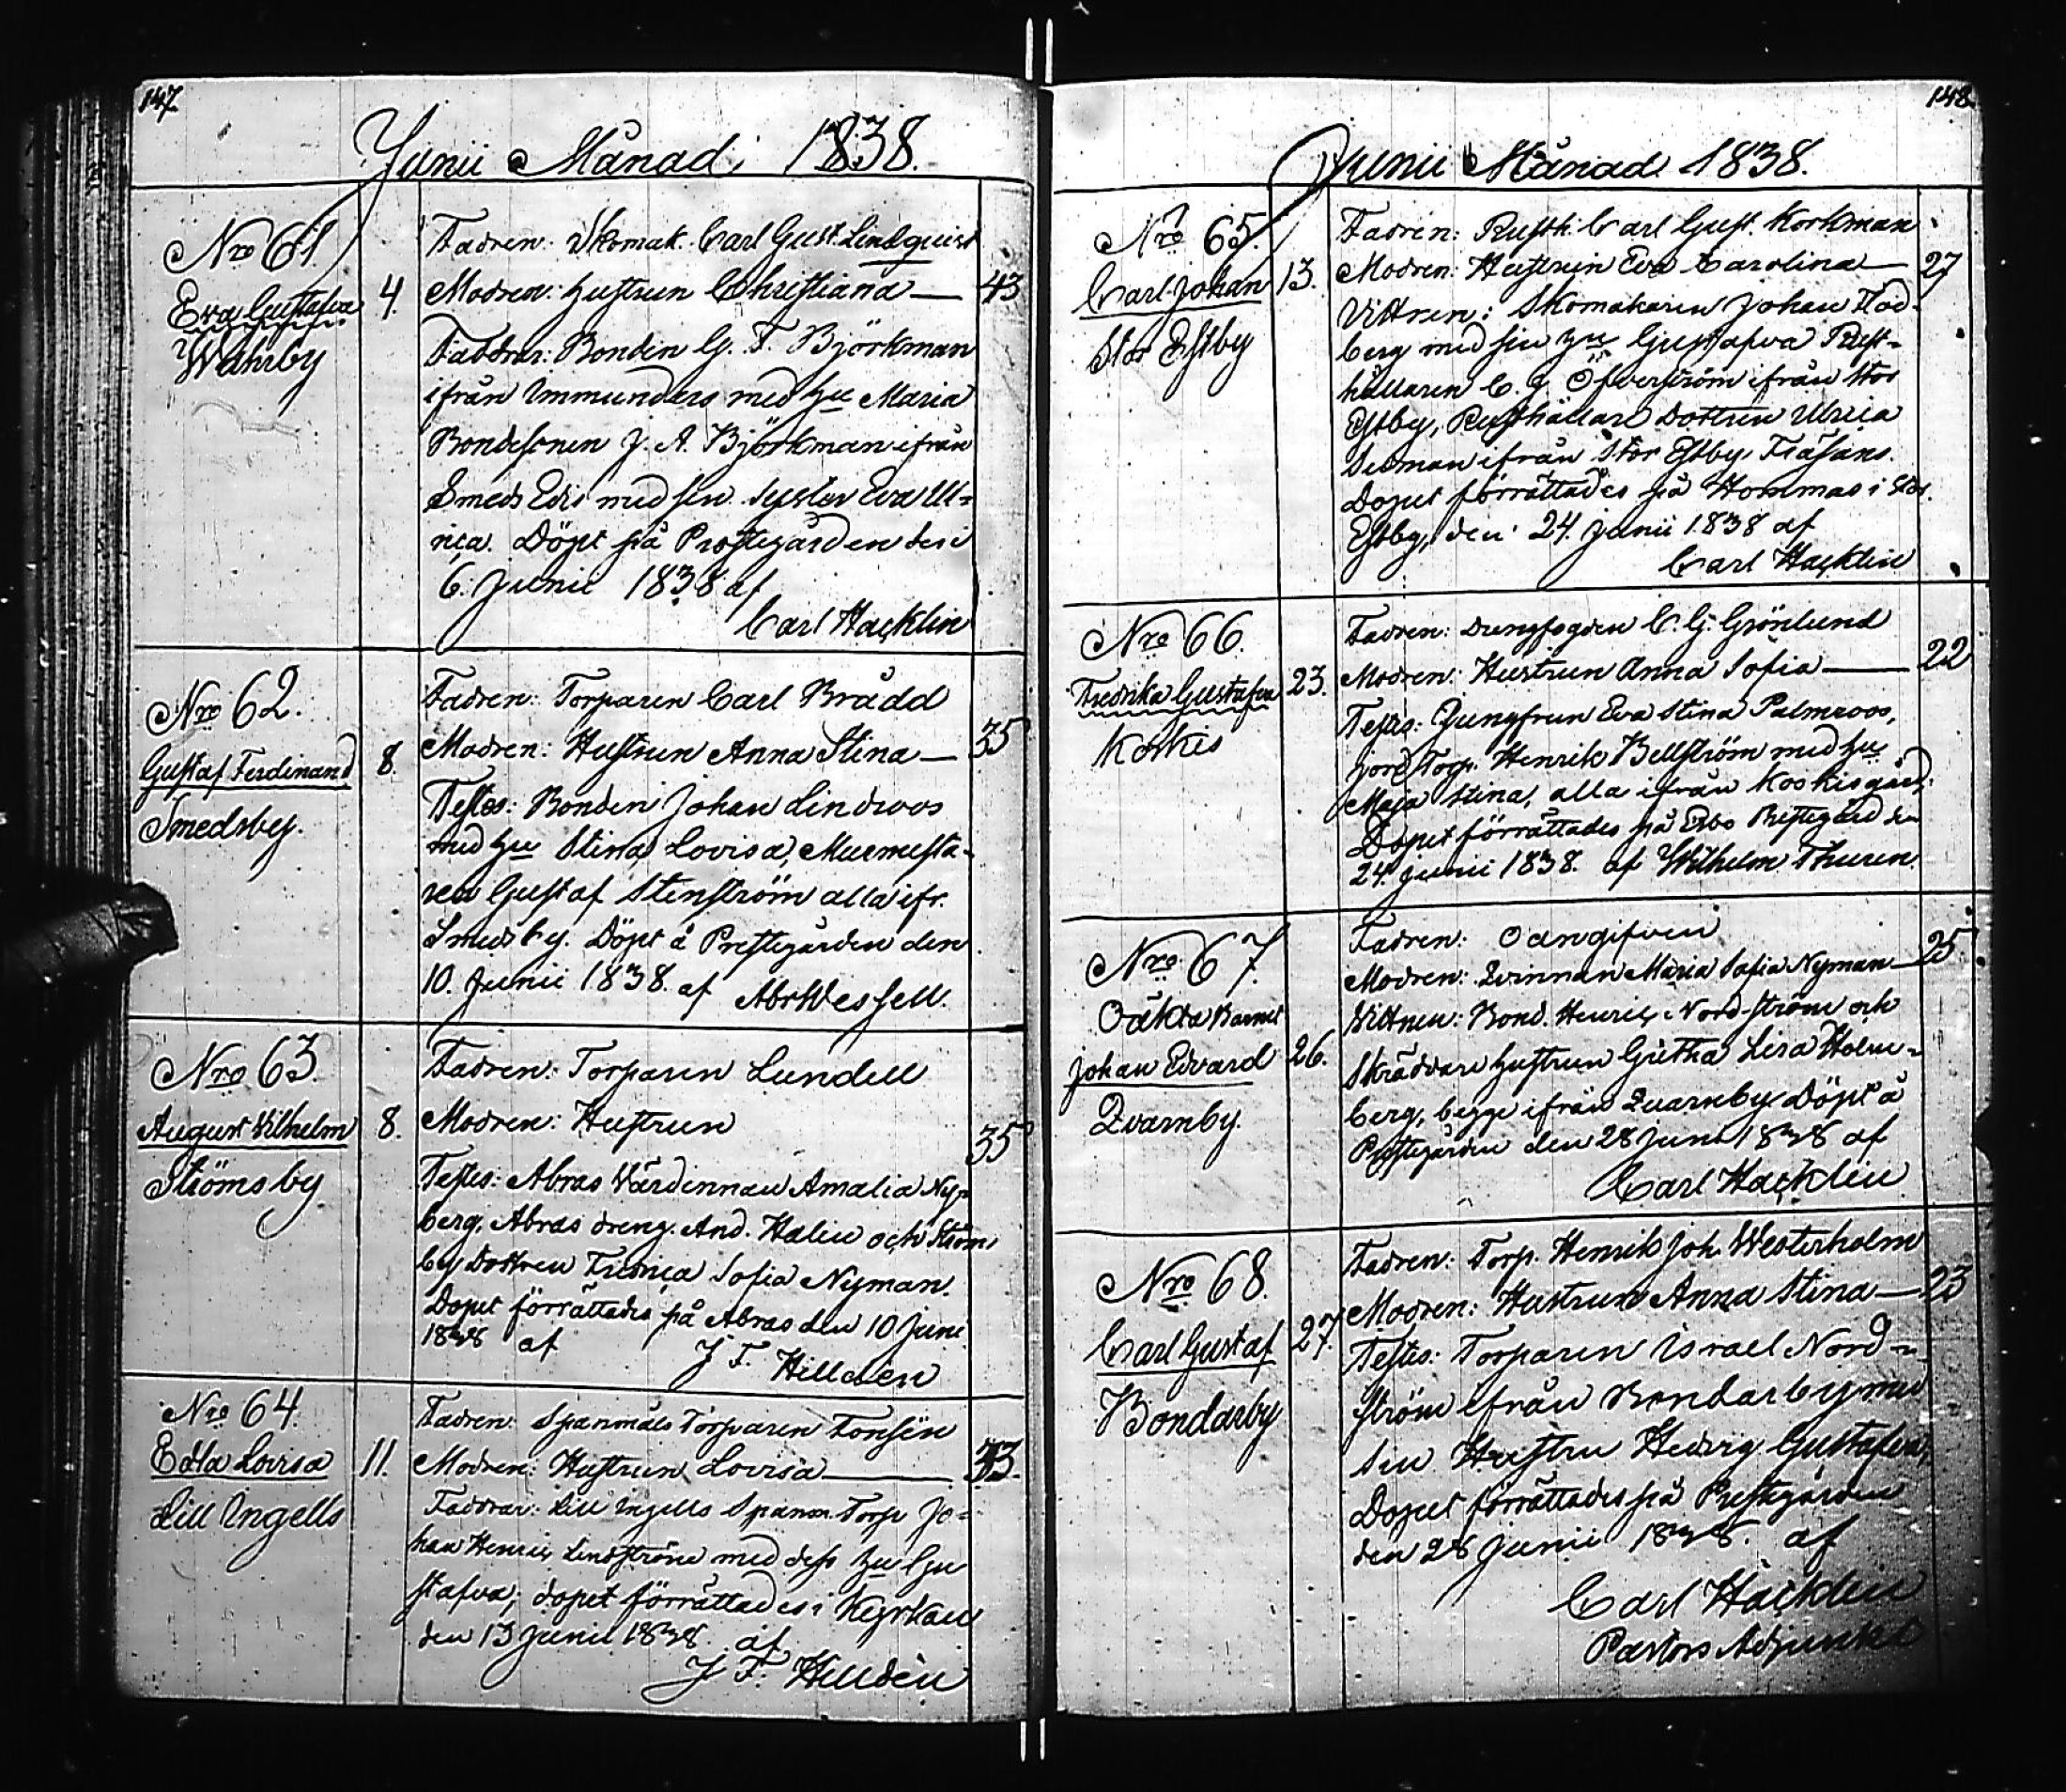 147.
Junii Månad 1838.
Nro 61.
Eva Gustafva
Wahrby
4.
Fadren: Skomak. Carl Gust. Lindquist
Modren: Hustrun Christiana — 43
Faddrar: Bonden G. F. Björkman
ifrån Immunders med Hu Maria
Bondesonen J. A. Björkman ifrån
Smeds Edis med sin syster Eva Ul=
rica. Döpt på Prostegården den
6. Junii 1838 af
Carl Hacklin
Nro 62.
Gustaf Ferdinand
Smedsby.
8.
Fadren: Torparen Carl Brådd
Modren: Hustrun Anna Stina — 35
Testes: Bonden Johan Lindroos
med Hu Stina Lovisa, Murmesta-
ren Gustaf Stenström alla ifr.
Smedsby. Döpt å Prestegården den
10. Junii 1838. af Abr Wessell.
Nro 63.
August Vilhelm
Strömsby
8.
Fadren: Torparen Lundell
Modren: Hustrun 35
Testes: Abras Värdinnan Amalia Ny-
berg, Abras dreng And. Halin och Ströms
by dottren Fredrica Sofia Nyman.
Dopet förrättades på Abras den 10 Juni
1838 af
J F. Hilldén
Nro 64.
Edla Lovisa
Lill Ingells
11.
Fadren: Spanmåls Torparen Fonsén
Modren: Hustrun Lovisa — 33.
Faddrar: Lill Ingells Spanm. Torp Jo=
han Henric Lindström med dess Hu Gu
stafva; dopet förrättades i Kyrkan
den 13 Junii 1838. af
J F. Hilldén
148.
Junii Månad 1838.
Nro 65.
Carl Johan
Stor Estby
13.
Fadren: Rusth. Carl Gust. Korkman
Modren: Hustrun Eva Carolina — 27
Vittnen: Skomakaren Johan Flod-
berg med sin Hu Gustafva Rust-
hållaren C. J. Öfverström ifrån Stor
Estby, Rusthållare Dottren Ulrica
ifrån Stor Estby Fräsans.
Dopet förrättades på Hommas i Stor
Estby, den 24. Junii 1838 af
Carl Hacklin
Nro 66.
Fredrika Gustafva
Koskis
23.
Fadren: Drengfogden C. G. Grönlund
Modren: Hustrun Anna Sofia — 22
Testes: Jungfrun Eva Stina Palmroos,
jord Torp. Henrik Bellström med Hu
Maja Stina, alla ifrån Koskis gård,
Dopet förrättades på Esbo Prestegård den
24. Junii 1838. af Wilhelm Thuren
Nro 67.
Oäkta Barnet
Johan Edvard
Qvarnby.
26.
Fadren: Oangifven
Modren: Qvinnan Maria Sofia Nyman — 25
Vittnen: Bond. Henric Nordström och
Skräddare Hustrun Gretha Lisa Holm-
berg, begge ifrån Quarnby Döpt å
Prestegården den 28 Juni 1838 af
Carl Hacklin
Nro 68.
Carl Gustaf
Bondarby
27.
Fadren: Torp. Henrik Joh. Westerholm
Modren: Hustrun Anna Stina — 23
Testes: Torparen Israel Nord-
ström ifrån Bondarby med
sin Hustru Hedvig Gustafva,
Dopet förrättades på Prestegården
den 28 Junii 1838. af
Carl Hacklin
Pastors Adjunkt